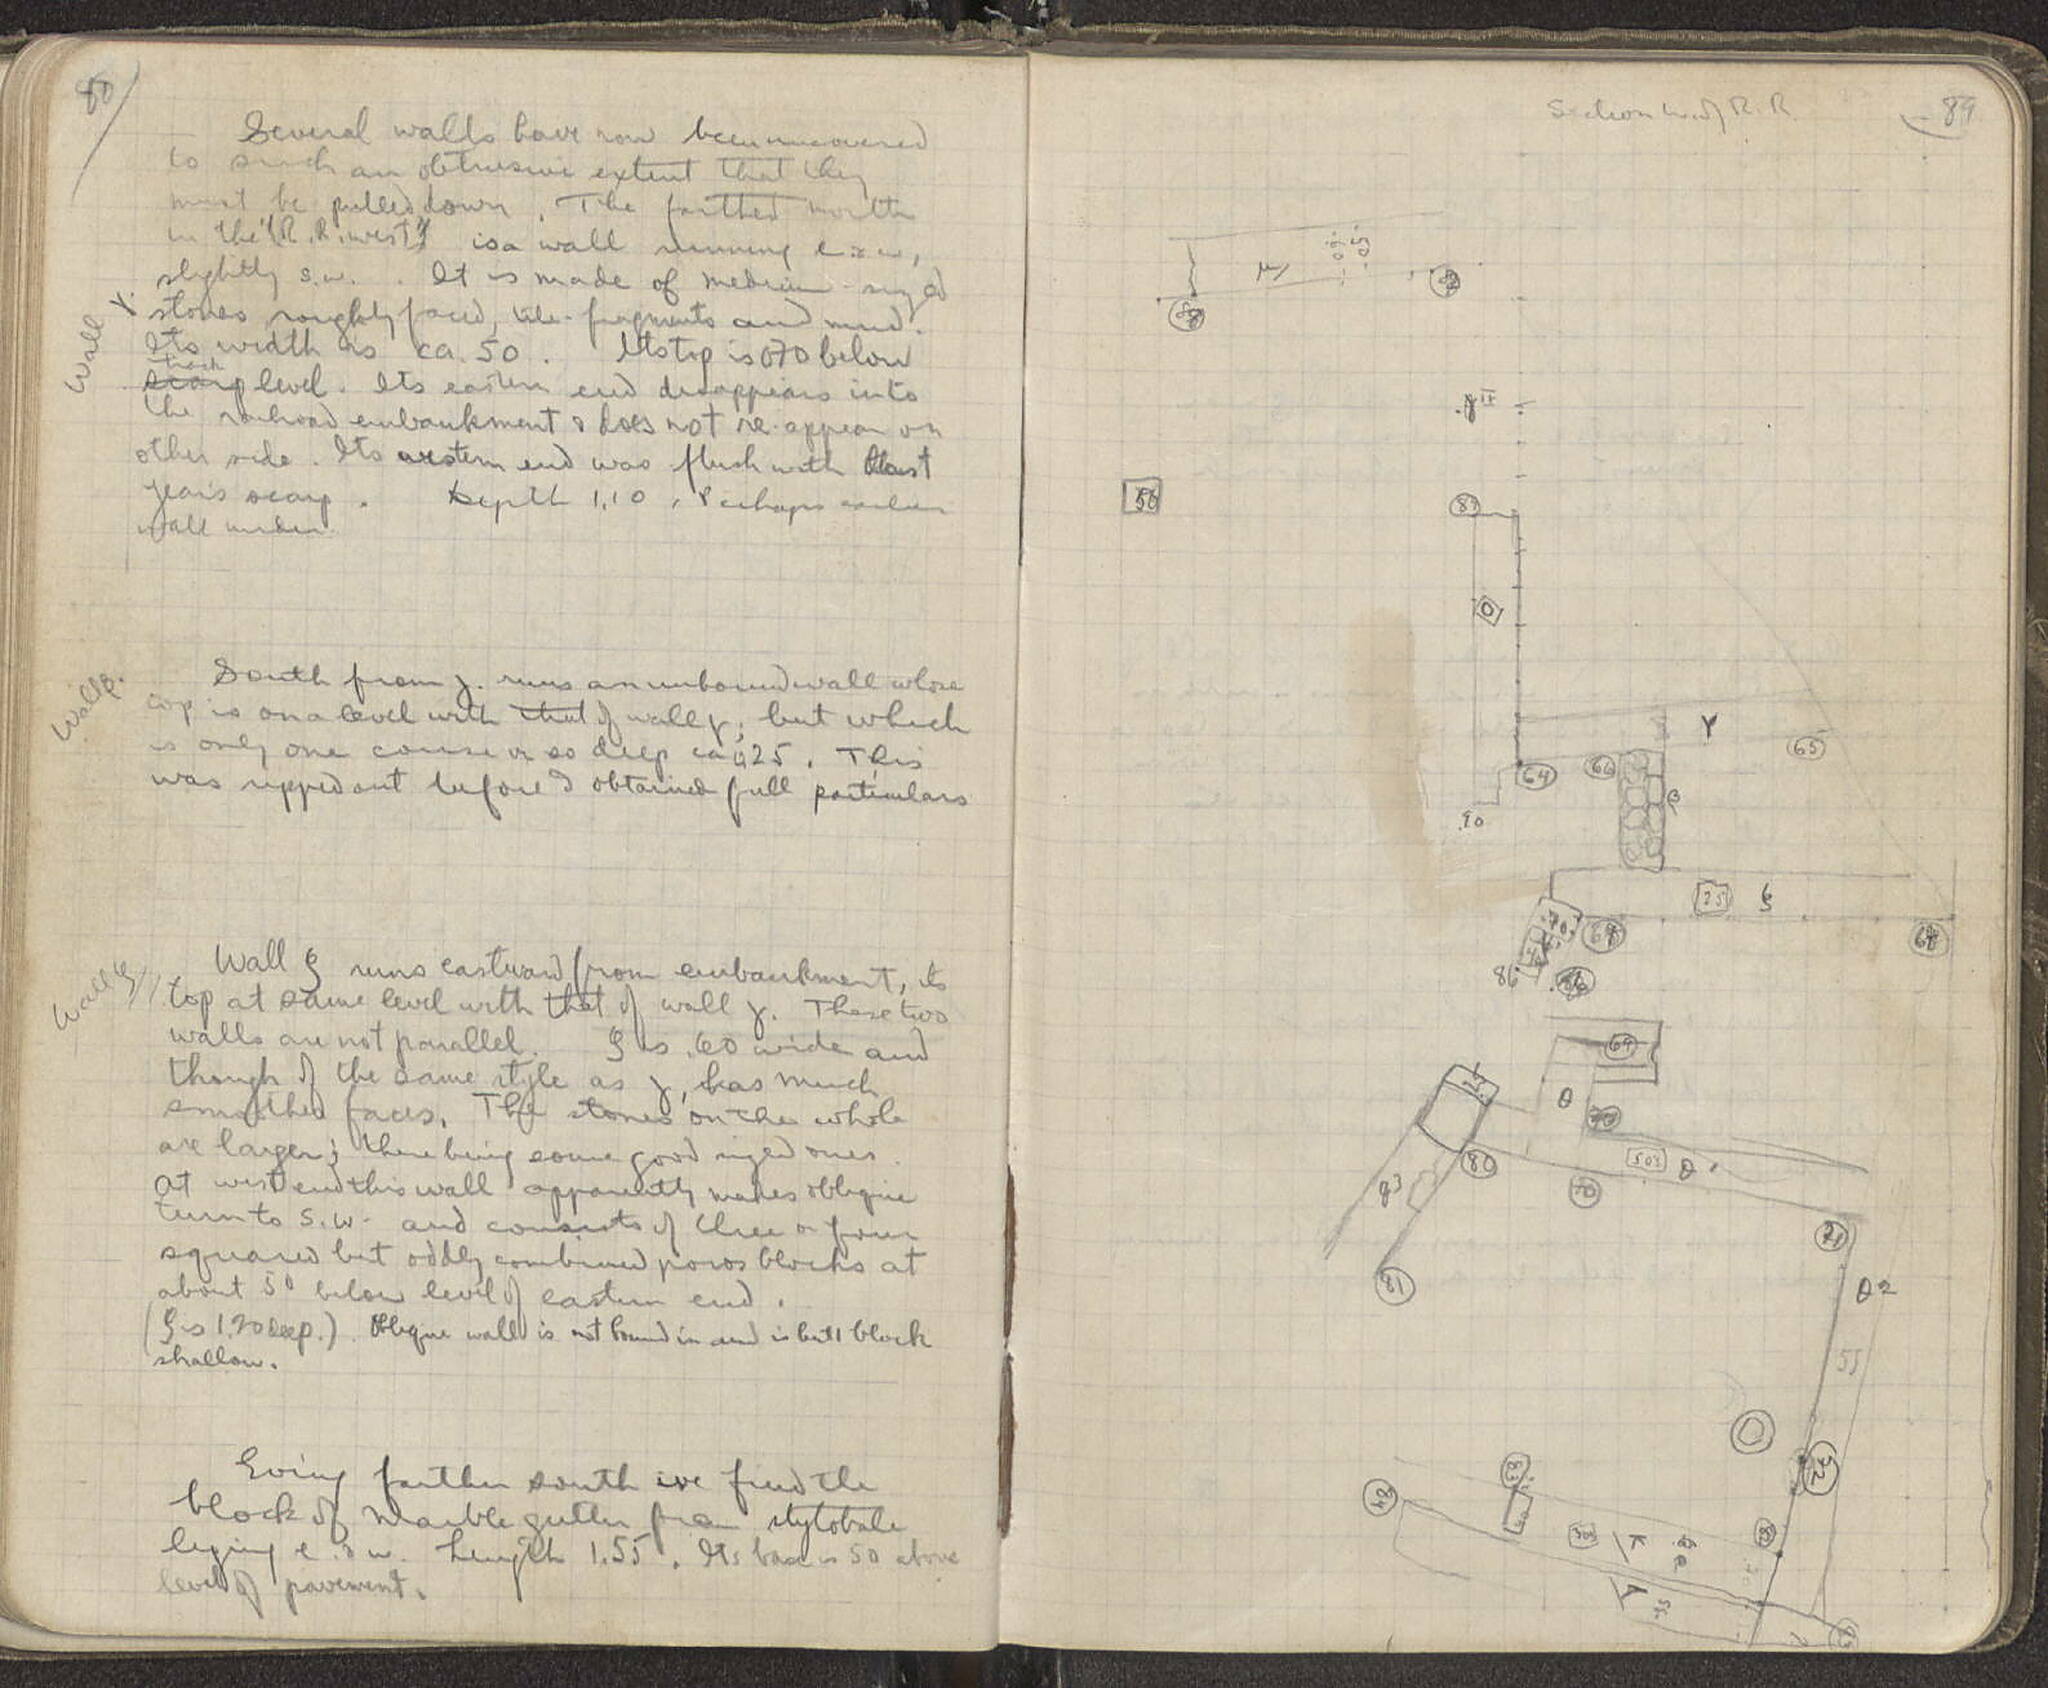 88
Several walls have now been uncovered
to such an obtrusive extent that they
must be pulled down. The farthest north
in the "(R.R. west)" is a wall running e & w,
slightly s.w. . It is made of medium-sized
Wall γ.
stones roughly faced, tile-fragments and mud.
Its width is ca. 50. Its top is 070 below
track
scarp level. Its eastern end disappears into
the railroad embankment & does not re-appear on
other side. Its western end was flush with last
year's scarp. Depth 1.10, Perhaps earlier
wall under.
Wall
South from γ. runs an unbound wall whose
top is on a level with that of wall γ, but which
is only one course or so deep ca 0,25. This
was ripped out before I obtained full particulars
Wall ξ
Wall ξ runs eastward from embankment, its
top at same level with that of wall γ. These two
walls are not parallel. ξ is .60 wide and
though of the same style as γ, has much
smoother faces. The stones on the whole
are larger; there being some good sized ones.
At west end this wall apparently makes oblique
turn to S.W. and consists of three or four
squared but oddly combined poros blocks at
about 50 below level of eastern end.
(ξ is 1.20 deep.). Oblique wall is not bound in and is but 1 block
shallow.
Going farther south we find the
block of marble gutter from stylobate
lying e. & w. Length 1.55. Its base is 50 above
level of pavement.
Section W. of R.R.
89
μ
88
56
87
0
γ
65
64
66
β
90
25
ξ
70
68
86
69
θ
80
50
θ'
70
81
θ2
55
72
83
84
K